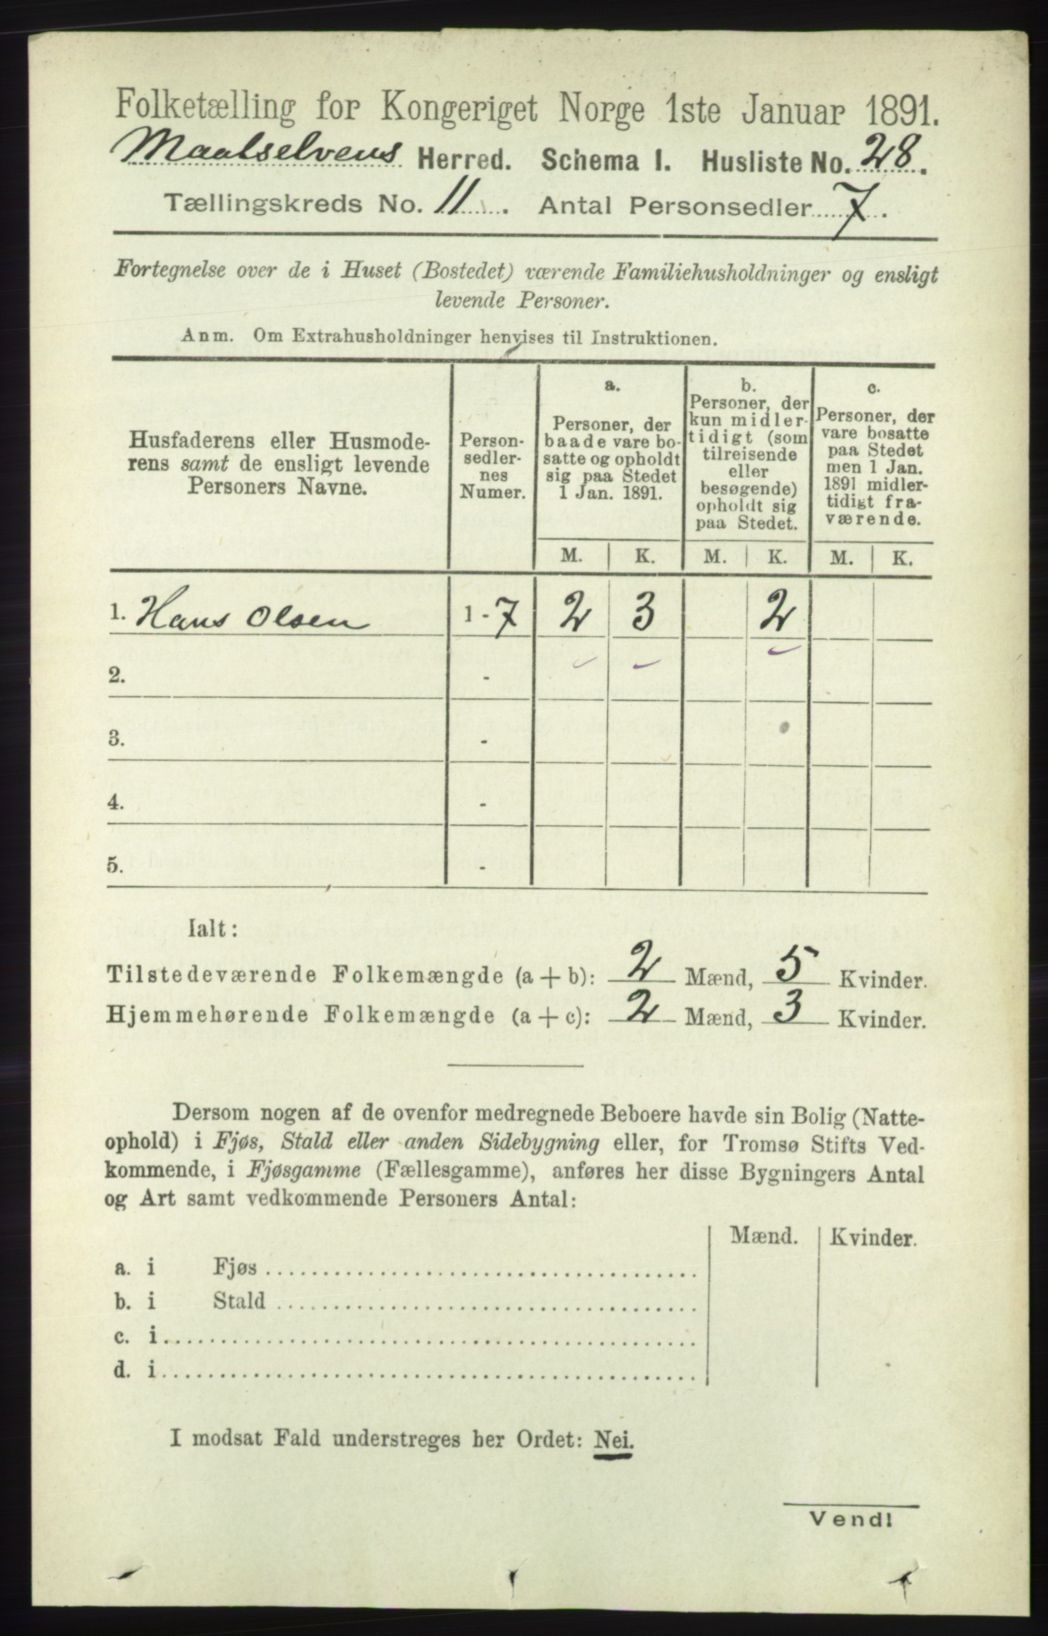 Folketælling for Kongeriget Norge 1ste Januar 1891.
Maalselvens Herred. Schema I. Husliste No. 28.
Tællingskreds No. 11. Antal Personsedler 7.
Fortegnelse over de i Huset (Bostedet) værende Familiehusholdninger og ensligt
levende Personer.
Anm. Om Extrahusholdninger henvises til Instruktionen.
Husfaderens eller Husmode-
rens samt de ensligt levende
Personers Navne.
Person-
sedler-
nes
Numer.
a.
Personer, der
baade vare bo-
satte og opholdt
sig paa Stedet
1 Jan. 1891.
b.
Personer, der
kun midler-
tidigt (som
tilreisende
eller
besøgende)
opholdt sig
paa Stedet.
c.
Personer, der
vare bosatte
paa Stedet
men 1 Jan.
1891 midler-
tidigt fra-
værende.
M. K. M. K. M. K.
1. Hans Olsen 1 - 7 2 3 2
2. -
3. -
4. -
5. -
Ialt:
Tilstedeværende Folkemængde (a + b): 2 Mænd, 5 Kvinder.
Hjemmehørende Folkemængde (a + c): 2 Mænd, 3 Kvinder.
Dersom nogen af de ovenfor medregnede Beboere havde sin Bolig (Natte-
ophold) i Fjøs, Stald eller anden Sidebygning eller, for Tromsø Stifts Ved-
kommende, i Fjøsgamme (Fællesgamme), anføres her disse Bygningers Antal
og Art samt vedkommende Personers Antal:
Mænd. Kvinder.
a. i Fjøs
b. i Stald
c. i
d. i
I modsat Fald understreges her Ordet: Nei.
Vend!